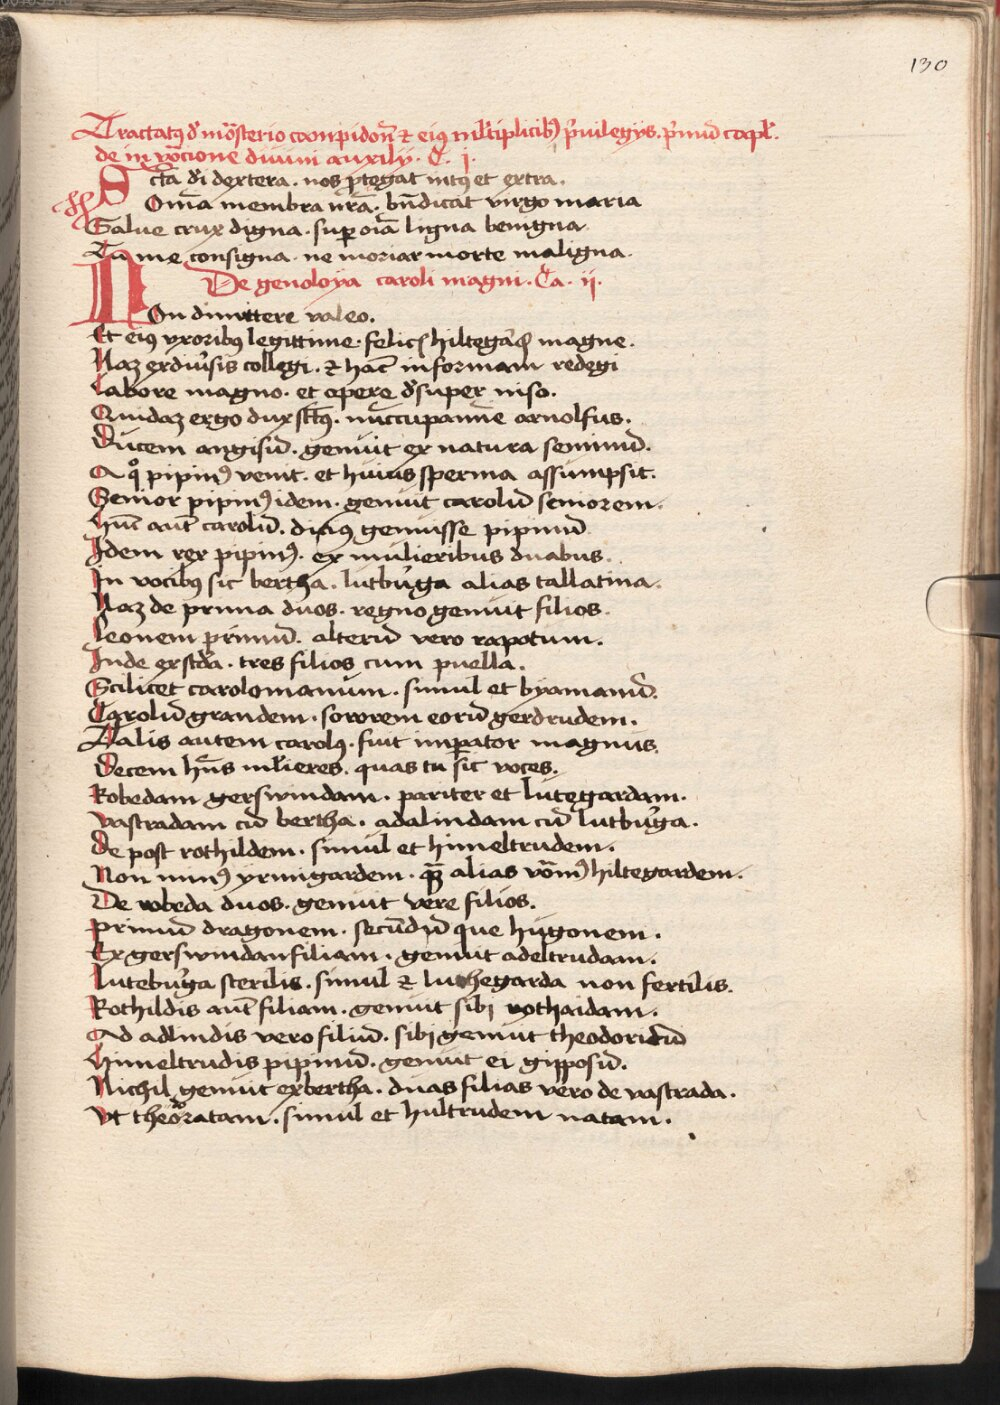 130
Tractatꝰ d' mōsterio campidon̄ ⁊ eiꝰ ml'tiplicibꝰ p'uilegijs. p'mū capl'.
de in vocione diuini auxilij. C. j.
Scta dī dextera. nos ꝓtegat intꝰ et extra.
Om̄a membra nr̄a. bn̄dicat virgo maria
Salue crux digna. sup oīa ligna benigna
Tu me consigna. ne moriar morte maligna.
De genoloya caroli magni. Ca. ii.
Non dimittere valeo.
Et eiꝰ vxoribꝰ legittime. felicis hiltegard' magne.
Naz ex diu'sis collegi. ⁊ hāc in formam redegi
Labore magno. et opere d'super niso.
Quidaz ergo dux sctūs. nūccupatiue arnolfus.
Ducem angisū. genuit ex natura seminū.
A qͦ pipinꝰ venit. et huius sperma assumpsit.
Senior pipinꝰ idem. genuit carolū seniorem.
Hūc aūt carolū. dicimꝰ genuisse pipinū
Idem rex pipinꝰ. ex mulieribus duabus.
In vocibꝰ sic bertha. lutbu'ga alias tallatina.
Naz de prima duos. regno genuit filios.
Leonem primū. alterū vero rapotum.
Inde ex scda. tres filios cum puella.
Scilicet carolomanum. simul et byamanū.
Carolū grandem. sororem eorū gerdrudem.
Talis autem carolꝰ. fuit imperator magnus.
Decem hn̄s ml'ieres. quas tu sic voces.
Robedam gerswindam. pariter et lutegardam.
Vastradam cū bertha. adalindam cū lutbu'ga.
De post rothildem. simul et himeltrudem.
Non minꝰ yrmigardem. quā alias vōmꝰ hiltegardem.
De robeda duos. genuit vere filios.
Primū dragonem. secūdū que hugonem.
Ex gerswindan filiam. genuit adeltrudam.
Lutebu'ga sterilis. simul ⁊ luthegarda non fertilis.
Rothildis aūt filiam. genuit sibi rothaidam.
Ad adlindis vero filiū. sibi genuit theodoricū
Himeltrudis pipinū. genuit ei gipposū.
Nichil genuit ex bertha. duas filias vero de vastrada.
Vt theodratam. simul et hiltrudem natam.